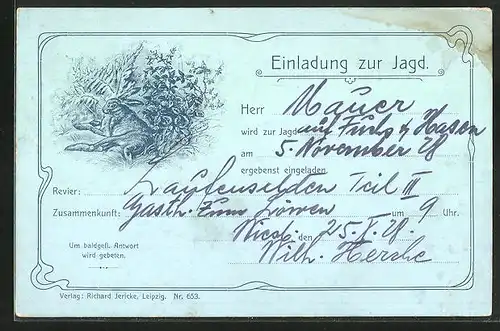 Einladung zur Jagd.
Herr Mauer
wird zur Jagd auf Fuchs & Hasen
am 5. November 28
ergebenst eingeladen.
Revier: Laufenselden Teil III
Zusammenkunft: Gasth. zum Löwen um 9 Uhr.
Um baldgefl. Antwort
wird gebeten.
den 25. X. 28.
Wilh.
Verlag: Richard Jericke, Leipzig. Nr. 653.